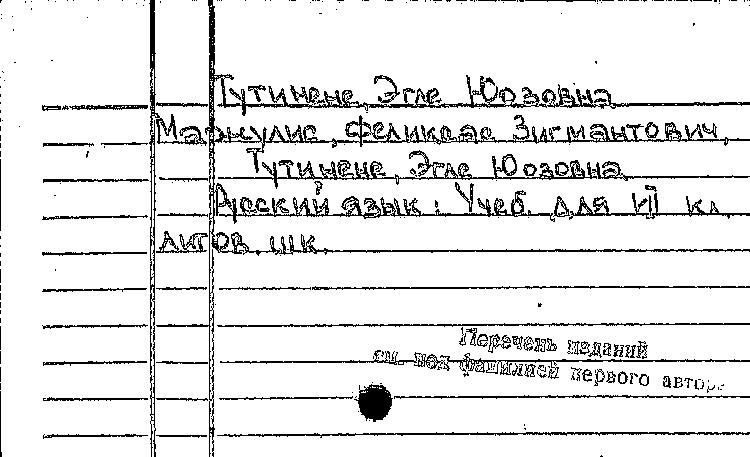 Тутинене, Эгле Юозовна
Маркулис, Феликсас Зигмантович,
Тутинене, Эгле Юозовна
Русский язык: Учеб. для VII кл.
литов. шк.
Перечень изданий
см. под фамилией первого автора